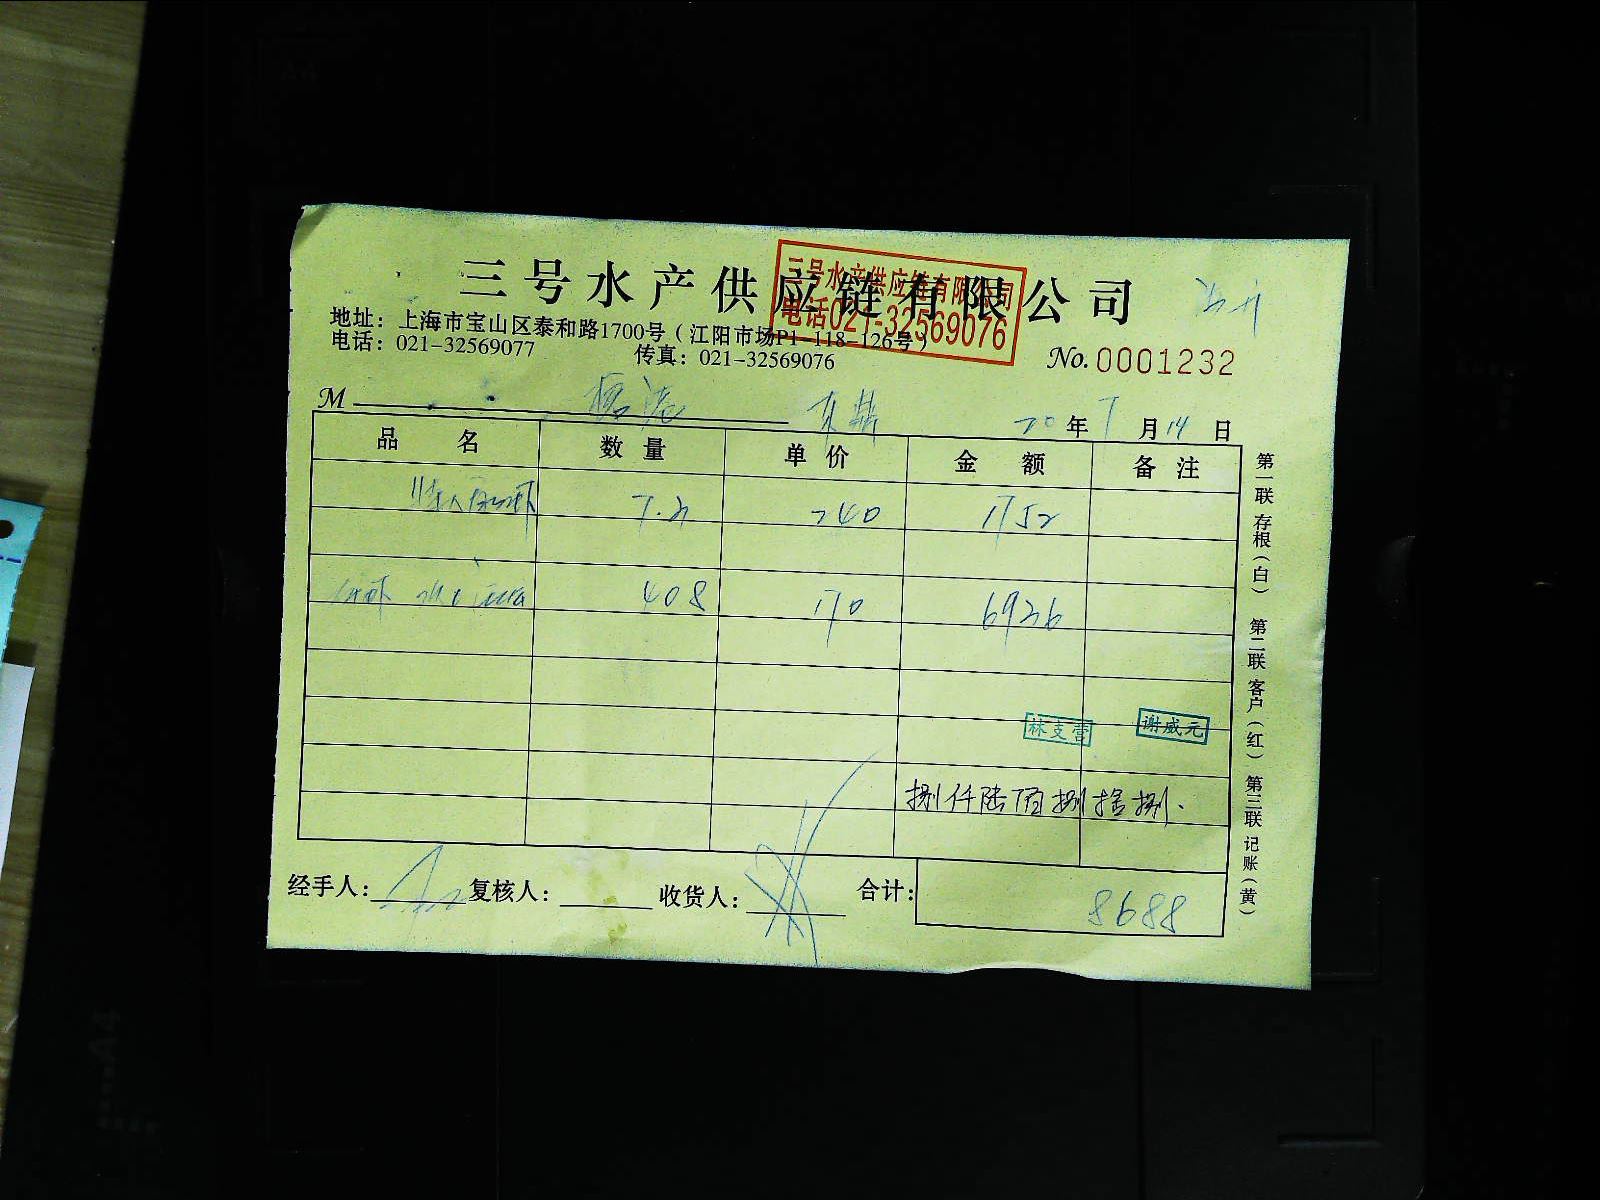 三号水产供应链有限公司
三号水产供应链有限公司
电话021-32569076
地址：上海市宝山区泰和路1700号（江阳市场P1-118-126号）
电话：021-32569077 传真：021-32569076
No.0001232
M 东鼎 20年7月14日
品名 数量 单价 金额 备注
240 1752
408 170 6936
林支营 谢威元
捌仟陆佰捌拾捌.
经手人： 复核人： 收货人： 合计：8688
第一联 存根（白） 第二联 客户（红） 第三联 记账（黄）